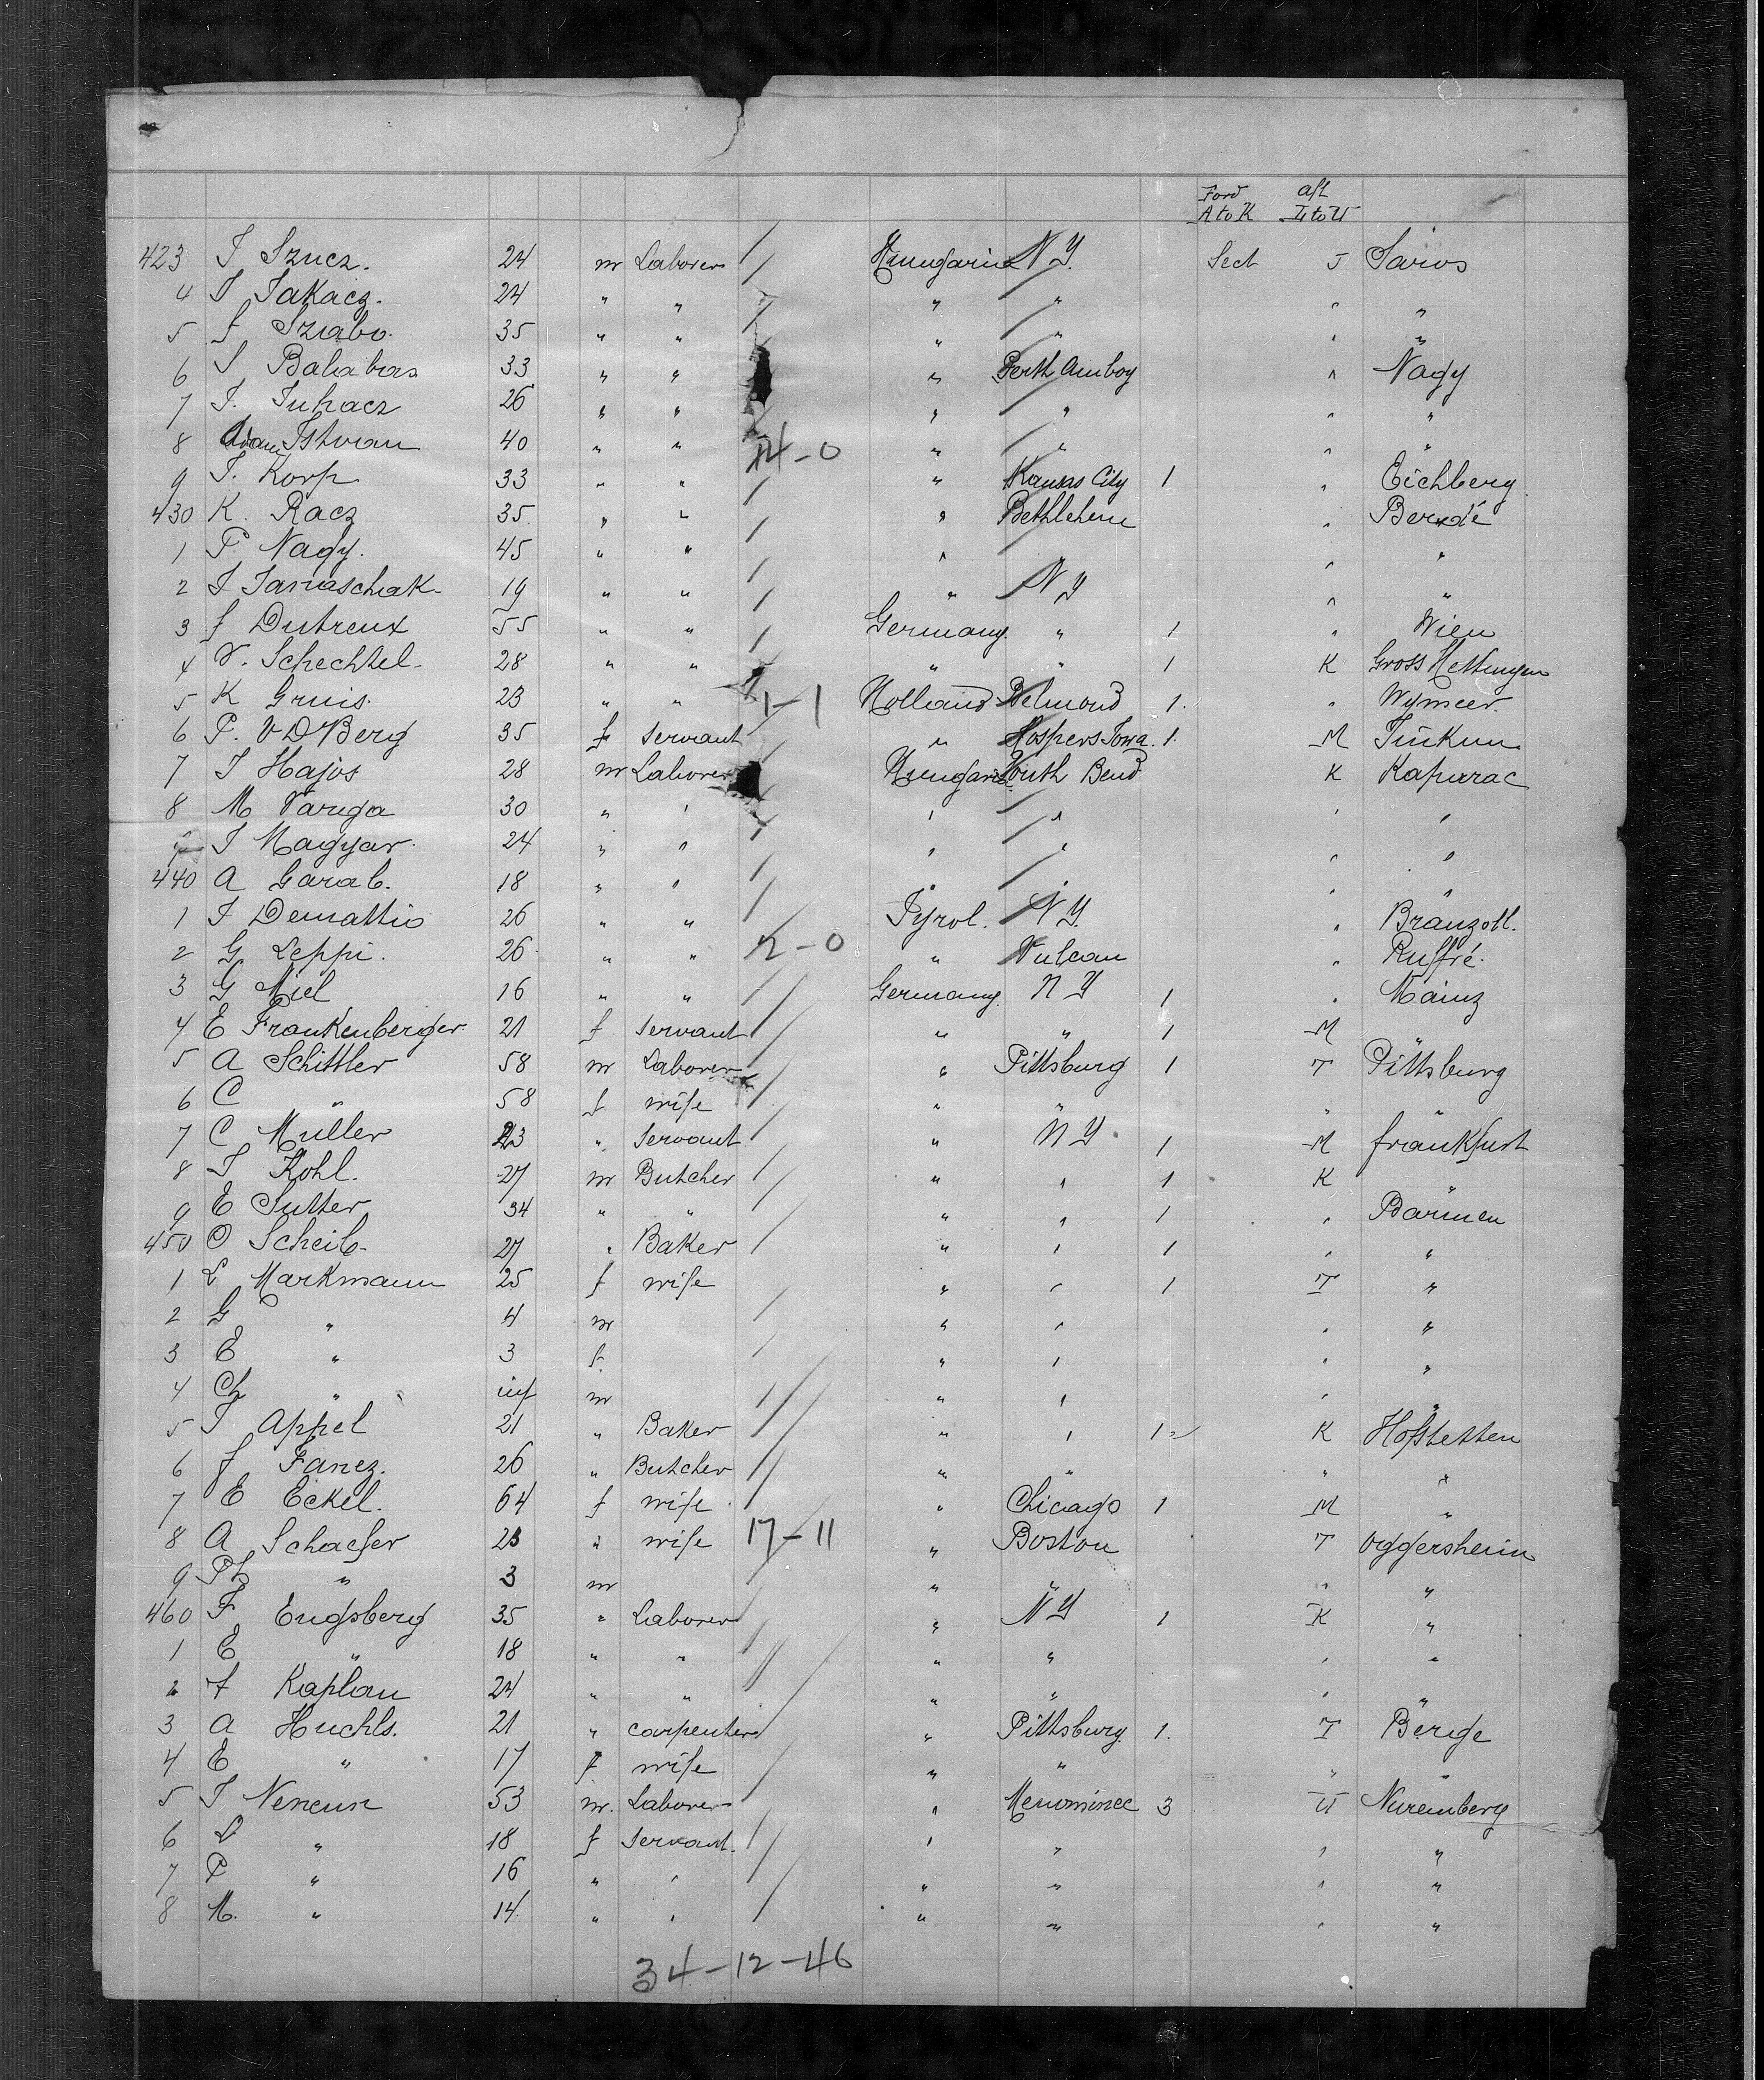 Ford aft
A to K L to U
423 J Szucz. 24 m Laborer Hungarie N Y. Sect J Saros
4 J Takacz. 24 " " " " " "
5 J Szabo. 35 " " " " " "
6 J Balabas 33 " " " Perth Amboy " Nagy
7 J. Juhacz 26 " " " " " "
8 Adam Istvan 40 " " 14-0 " " " "
9 J. Korp 33 " " " Kansas City 1 " Eichberg
430 K. Racz 35 " " " Bethlehem "
1 P Nagy. 45 " " " " "
2 J Janaschak 19 " " " N Y " "
3 J Dutreux 55 " " Germany " 1 " Wien
4 V. Schechtel 28 " " " " 1 K Gross
5 K Gruis. 23 " " 1-1 Holland Belmond 1. " Wymeer.
6 P. V D Berg 35 f Servant " Hospers Iowa. 1. M
7 J Hajos 28 m Laborer Hungarie South Bend K Kapurac
8 M Varga 30 " " " " " "
9 J Magyar. 24 " " " " " "
440 A Garab. 18 " " " " " "
1 J Demattio 26 " " Tyrol. N Y. " Branzoll.
2 G Leppi. 26 " " 2-0 " Vulcan " Ruffré.
3 G Miel 16 " " Germany N Y 1 " Mainz
4 E Frankenberger 21 f Servant " " 1 M "
5 A Schittler 58 m Laborer " Pittsburg 1 T Pittsburg
6 C " 58 f wife " " " "
7 C Muller 23 " Servant " N Y. 1 M Frankfurt
8 J Kohl. 27 m Butcher " " 1 K "
9 E Sutter 34 " " " " 1 " Barmen
450 O Scheib 27 " Baker " " 1 " "
1 L Markmann 25 f wife " " 1 T "
2 G " 4 m " " " "
3 E " 3 f. " " " "
4 Ch " inf m " " " "
5 J Appel 21 " Baker " " 1 K Hofstetten
6 J Fancz. 26 " Butcher " " " "
7 E Eckel. 64 f wife " Chicago 1 M "
8 A Schaefer 23 " wife 17-11 " Boston T Oggersheim
9 Ph " 3 m " " " "
460 F Engsberg 35 " Laborer " N Y 1 K "
1 E " 18 " " " " " "
2 A Kaplan 24 " " " " " "
3 A Huchls. 21 " carpenter " Pittsburg. 1. T Berge
4 E " 17 f wife " " " "
5 J 53 m. Laborer " Menominee 3 U Nuremberg
6 L " 18 f Servant. " " " "
7 P " 16 " " " " " "
8 M. " 14 " " " " " "
34-12-46